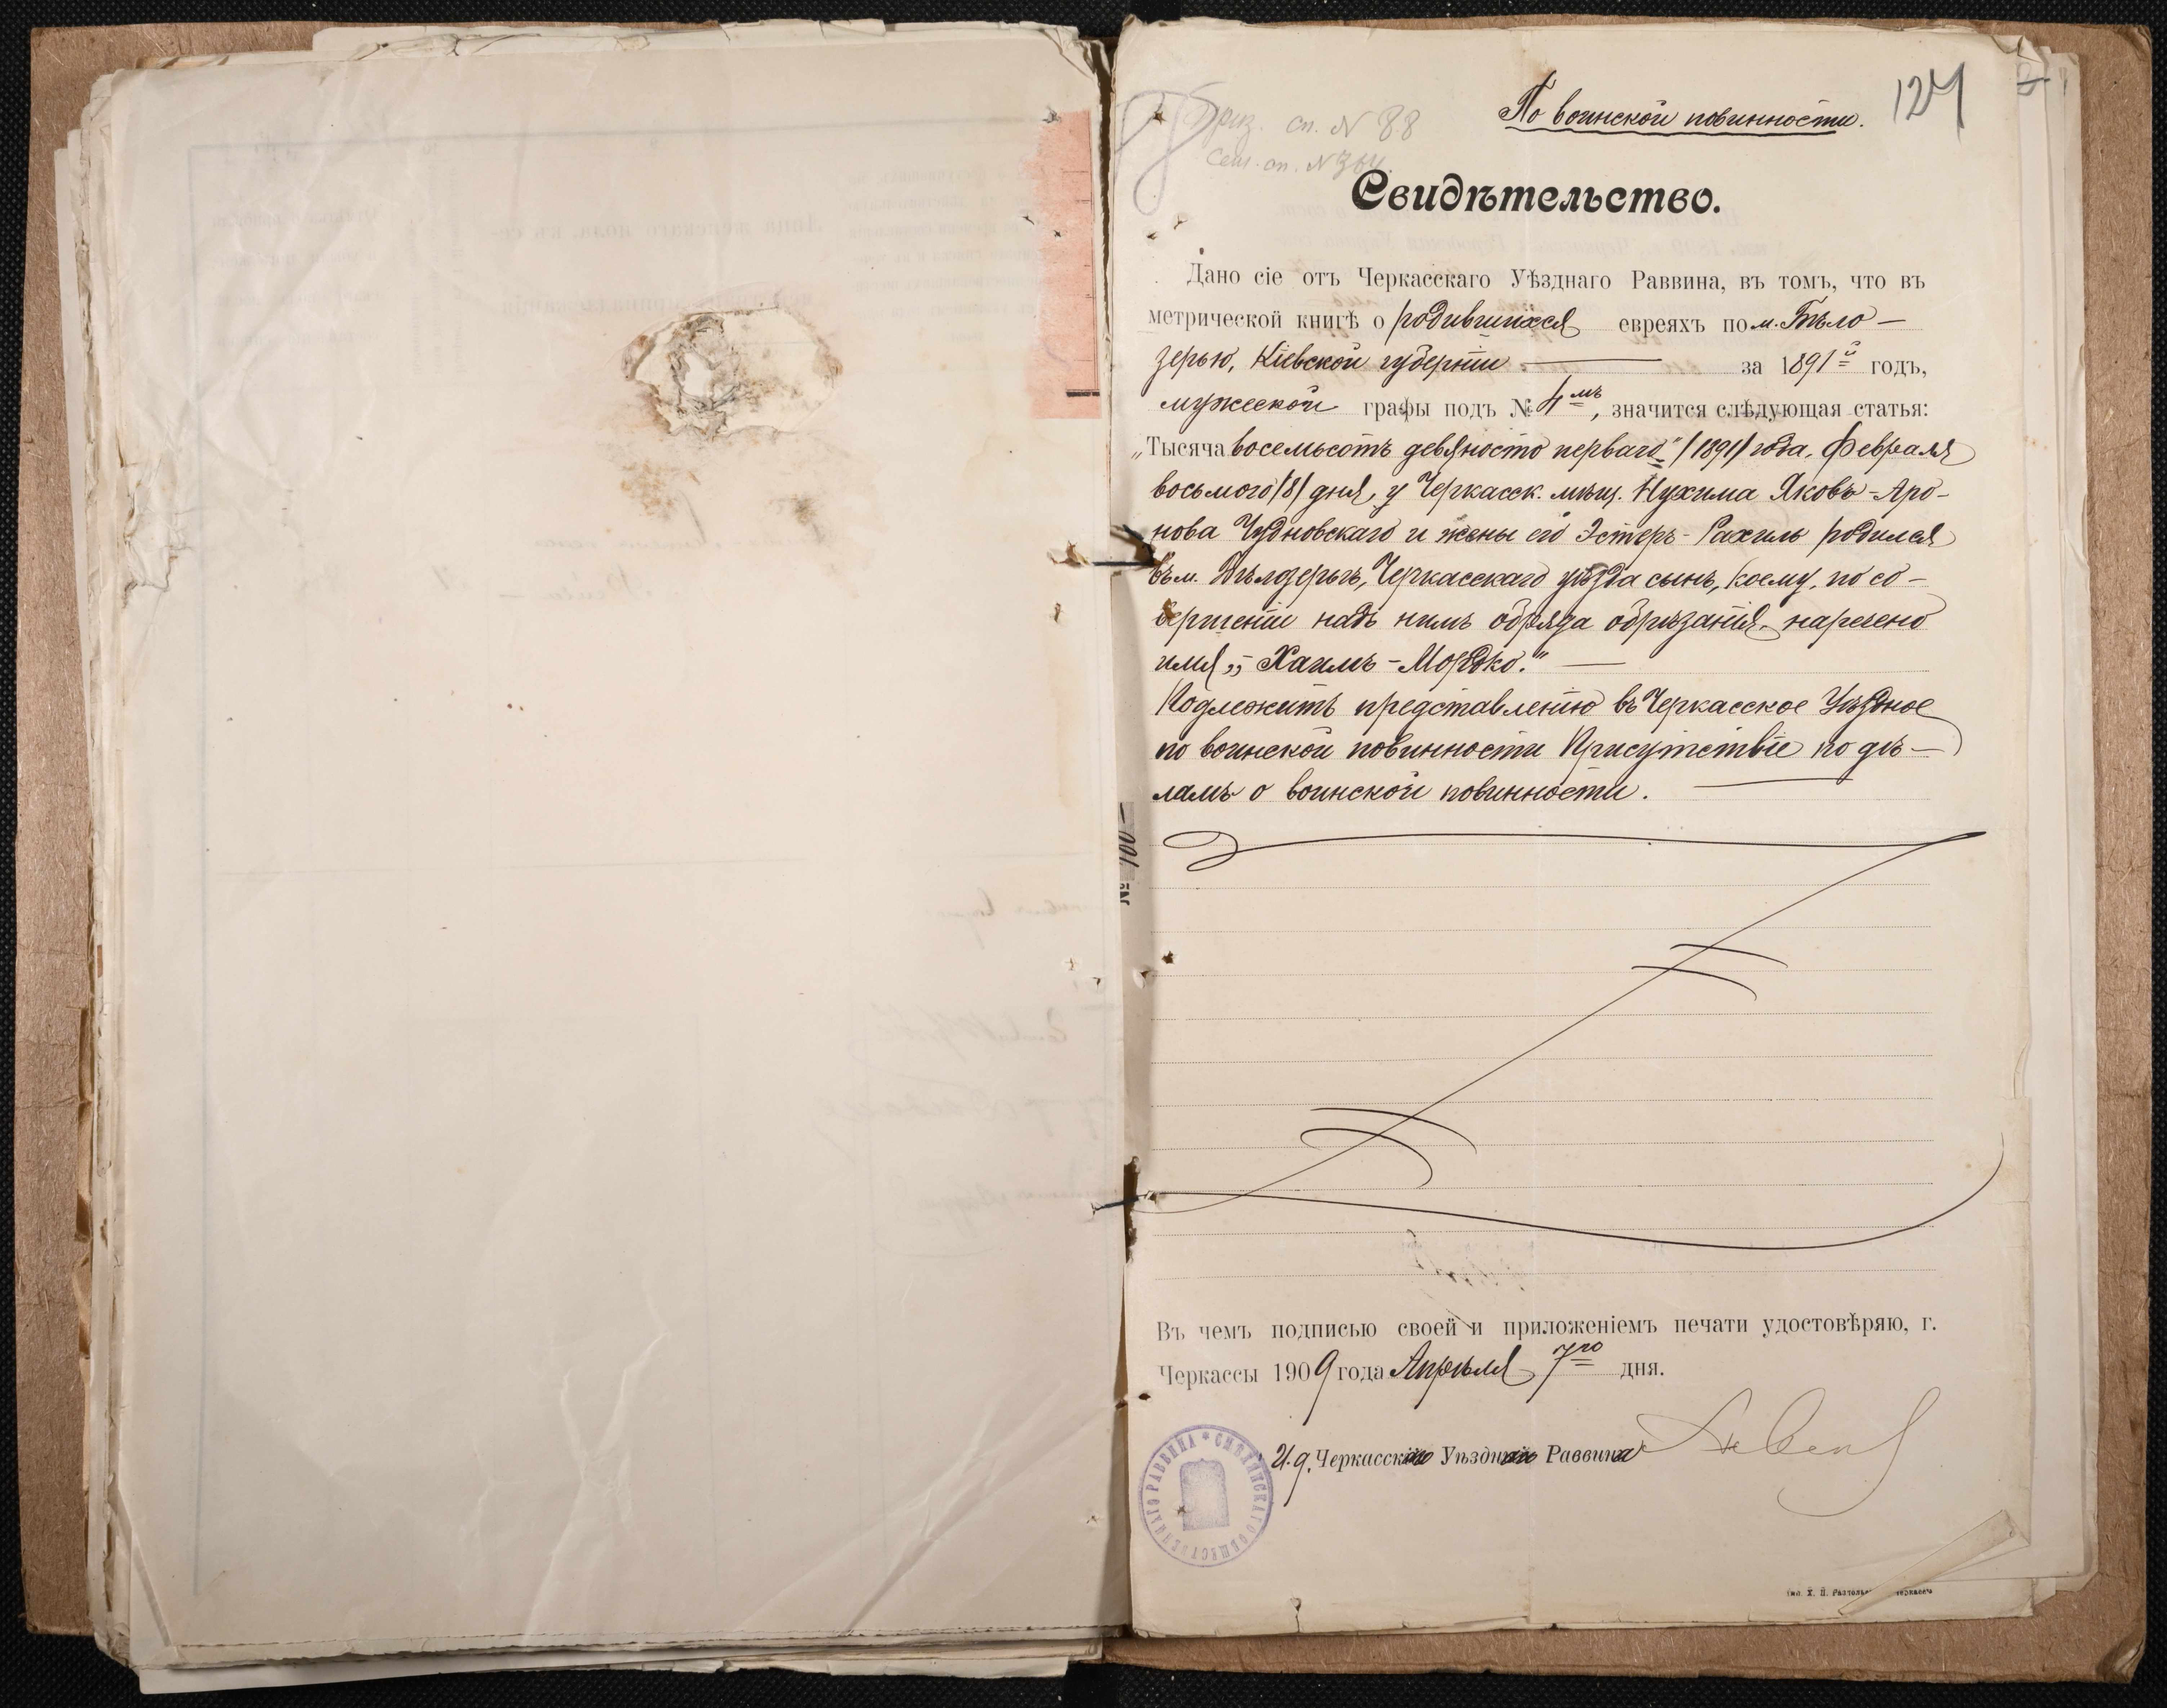 По воинской повинности.
127
Приз. сп. N 88
Сем. сп. N 364
Свидѣтельство.
Дано сіе отъ Черкасскаго Уѣзднаго Раввина, въ томъ, что въ
метрической книгѣ о родившихся евреяхъ по м. Бѣло-
зерью, Кіевской губерніи за 1891й годъ,
мужеской графы подъ № 4мъ, значится слѣдующая статья:
„Тысяча восемьсотъ девяносто перваго" /1891/ года, Февраля
восьмого /8/ дня, у Черкасск. мѣщ. Нухима Яковъ-Аро-
нова Чудновскаго и жены его Эстеръ-Рахиль родился
въ м. Бѣлозерьѣ, Черкасскаго уѣзда сынъ, коему, по со-
вершеніи надъ нимъ обряда обрѣзанія, наречено
имя „Хаимъ-Мордко."
Подлежитъ представленію въ Черкасское Уѣздное
по воинской повинности Присутствіе по дѣ-
ламъ о воинской повинности.
№ 100
Въ чемъ подписью своей и приложеніемъ печати удостовѣряю, г.
Черкассы 1909 года Апрѣля 7го дня.
И. д. Черкасскаго Уѣзднаго Раввина
СМѢЛЯНСКАГО ОБЩЕСТВЕННАГО РАВВИНА